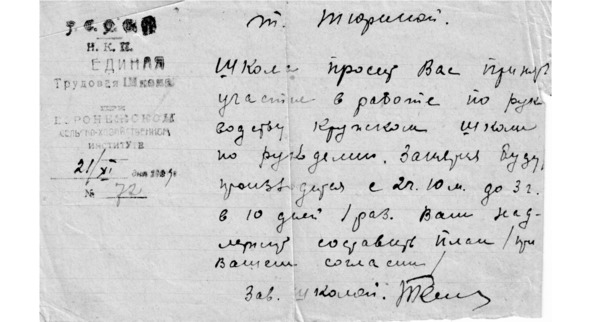 Р. С. Ф. С. Р.
Н. К. П.
ЕДИНАЯ
Трудовая Школа
при
ВОРОНЕЖСКОМ
СЕЛЬСКО-ХОЗЯЙСТВЕННОМ
ИНСТИТУТЕ
21/XI дня 192
№ 72
т. Тюриной.
Школа просит Вас принять
участие в работе по рук
водству кружком школы
по рукоделию. Занятия будут
производится с 2 ч. 10 м. до 3 ч.
в 10 дней /раз. Вам над-
лежит составить план /при
Вашем согласии/
Зав. школой.